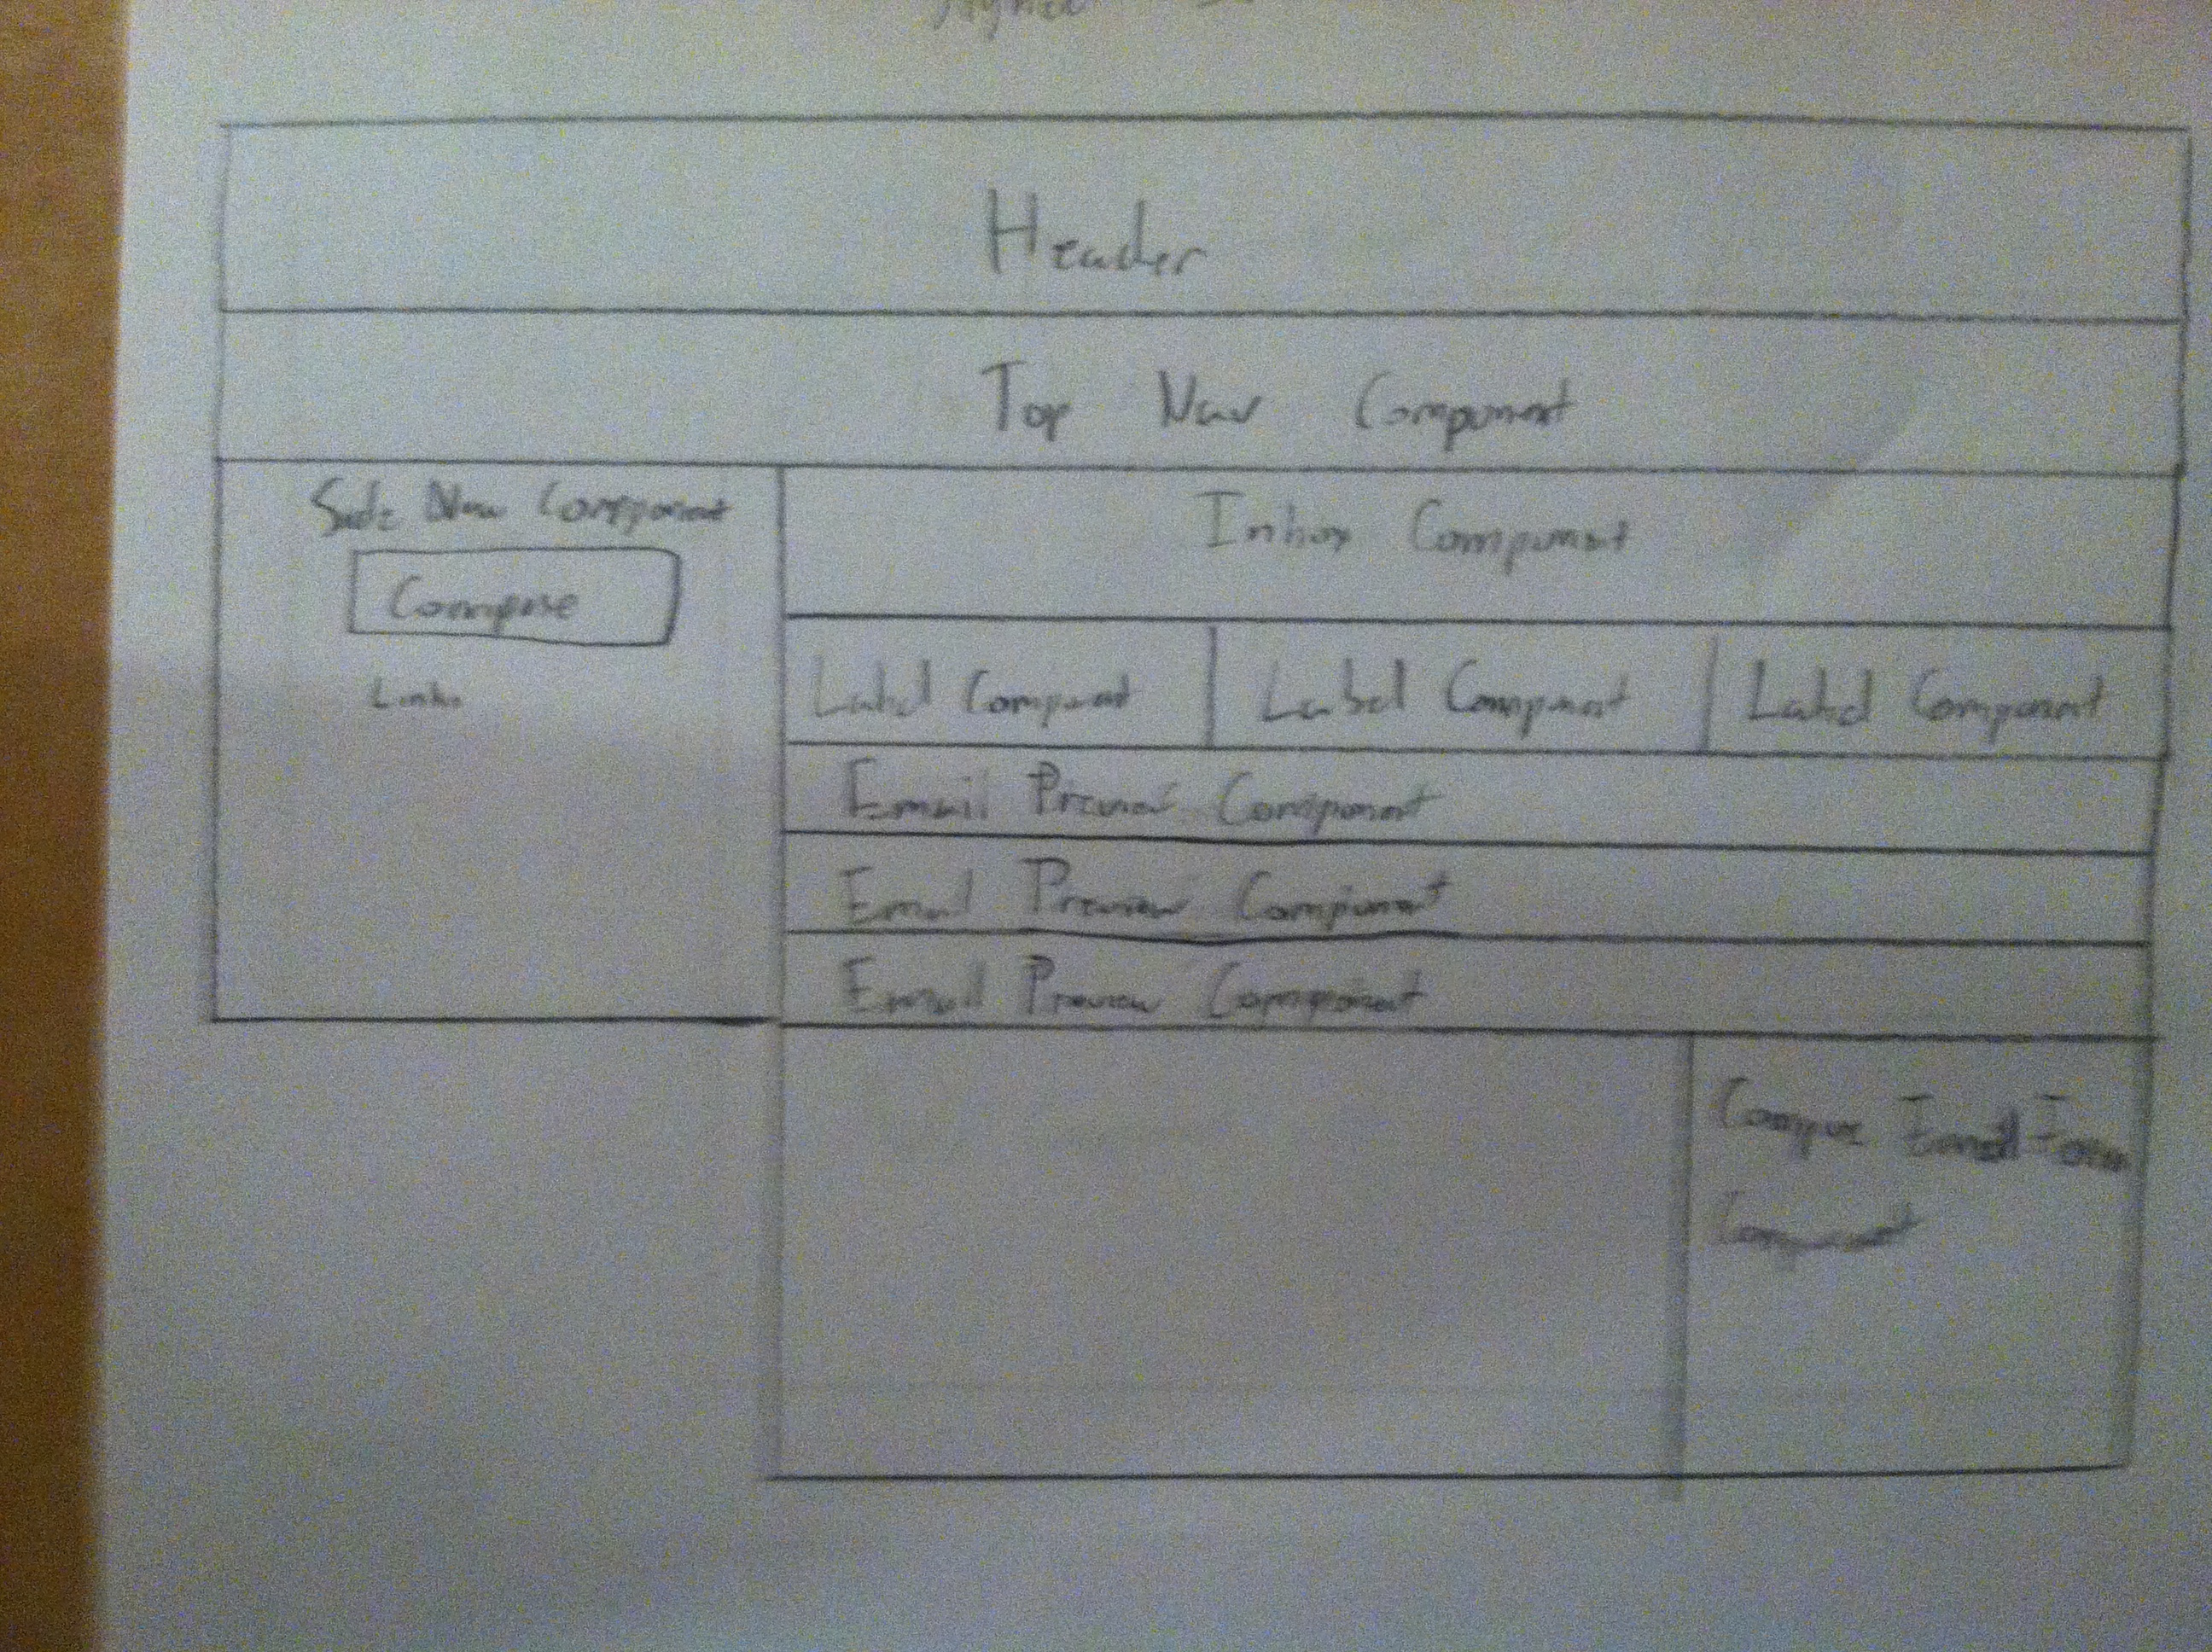 Header
Top Nav Component
Side Nav Component
Compose
Links
Inbox Component
Label Component Label Component Label Component
Email Preview Component
Email Preview Component
Email Preview Component
Compose Email Form
Component